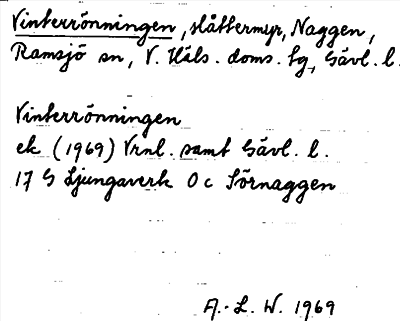 Vinterrönningen, slåttermyr, Naggen,
Ramsjö sn, V. Häls. doms. tg, Gävl. l.
Vinterrönningen
ek (1969) Vrnl. samt Gävl. l.
17 G Ljungaverk 0 c Sörnaggen
A.-L. W. 1969